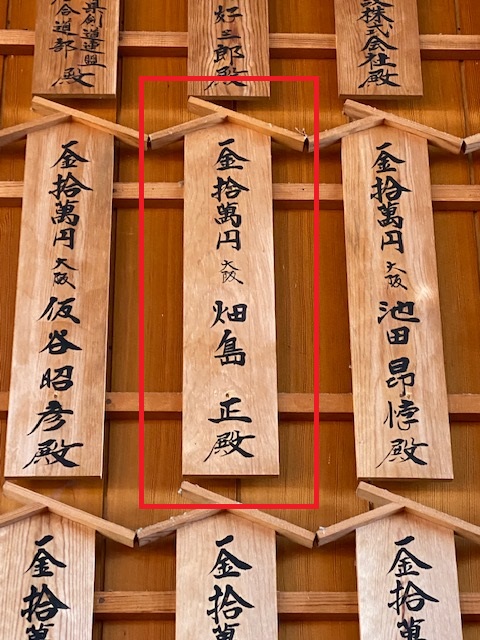 株式会社殿
好三郎殿
県剣道連盟
合道部 殿
一金拾萬円 大阪 池田昂惇殿
一金拾萬円 大阪 畑島 正殿
一金拾萬円 大阪 仮谷昭彦殿
一金拾萬
一金拾萬
一金拾